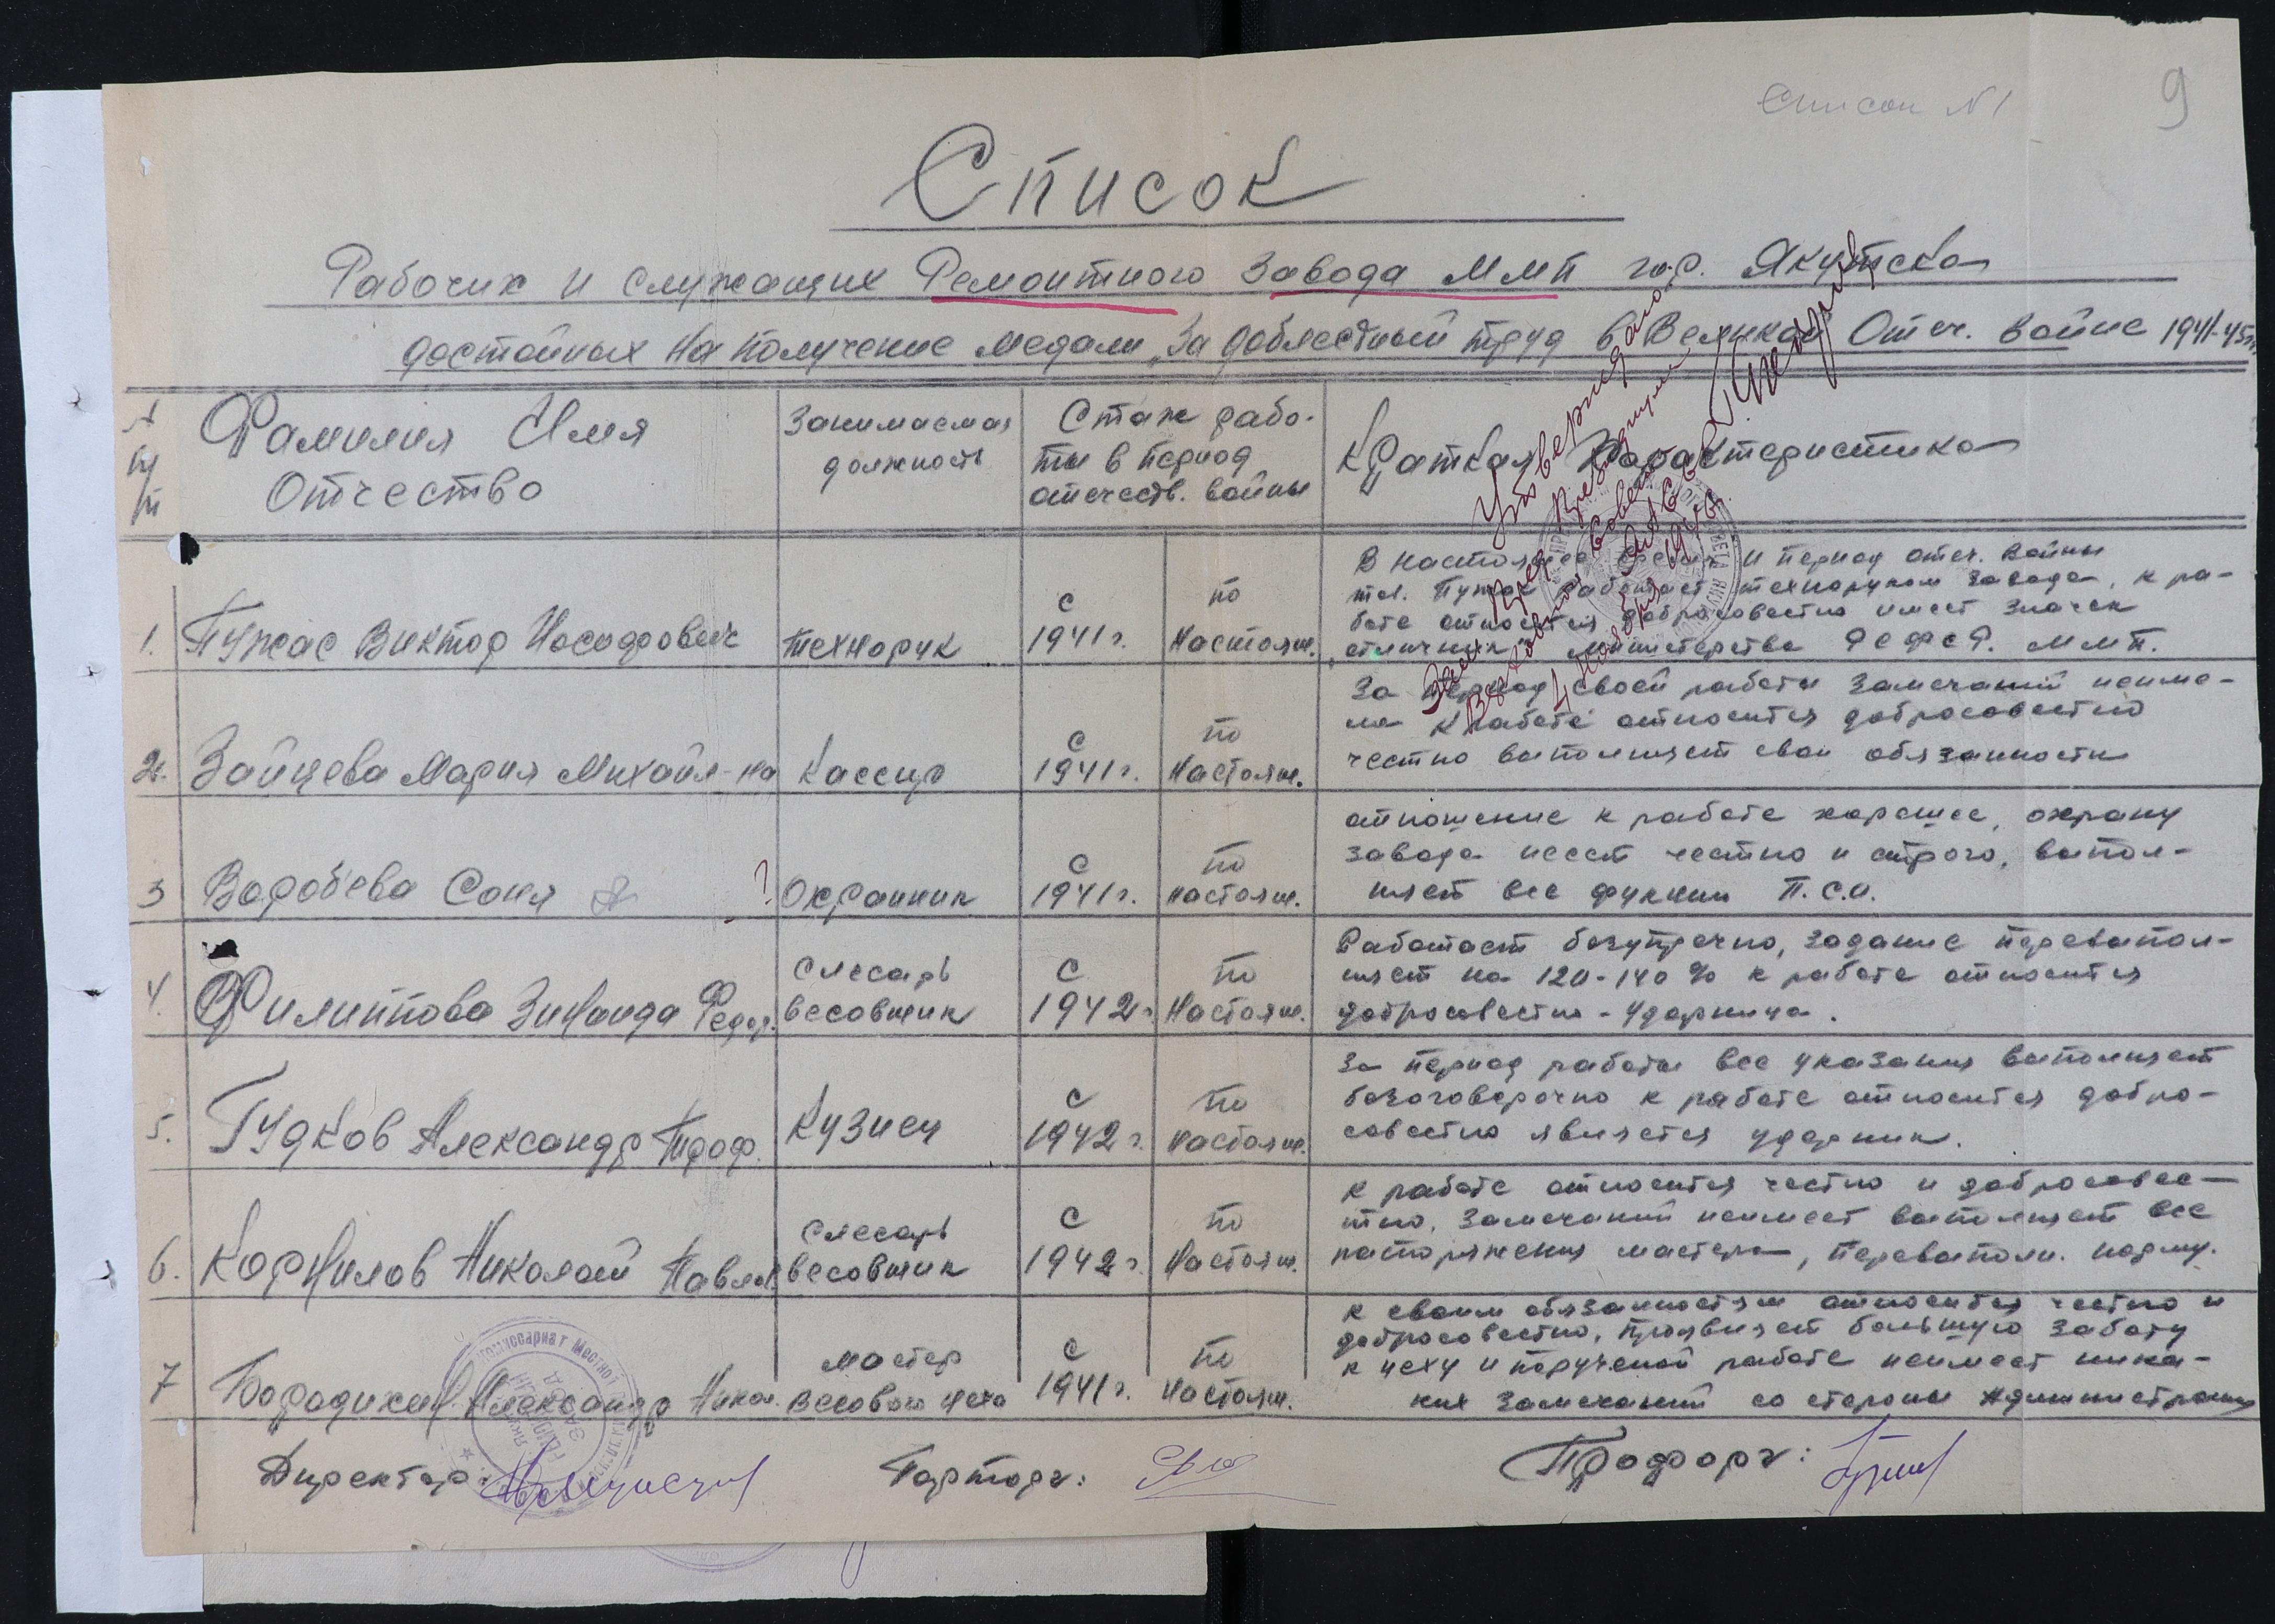 Список №1
9
Список
Рабочих и служащих Ремонтного Завода ММП гор. Якутска
достойных на получение медали „За доблестный труд в Великой Отеч. войне 1941-45гг.
№ п/п
Фамилия Имя
Отчество
Занимаемая
должность
Стаж рабо-
ты в период
отечеств. войны
Краткая Характеристика
Утверждаю
Зам. Пред. Президиума
Верховного Совета ЯАССР
4 ноября 1946
1.
Пужас Виктор Иосифович
технорук
с
1941 г.
по
настоящ.
В настоящее время и период отеч. войны
тов. Пужас работает техноруком завода, к ра-
боте относится добросовестно имеет значек
„отличник" министерства РСФСР. ММП.
2.
Зайцева Мария Михайл-на
Кассир
с
1941 г.
по
настоящ.
За период своей работы замечаний неиме-
ла к работе относится добросовестно
честно выполняет свои обязанности
3
Воробьева Соня
?
Охранник
с
1941 г.
по
настоящ.
отношение к работе хорошее, охрану
завода несет честно и строго, выпол-
няет все функции П.С.О.
4.
Филиппова Зинаида Федор.
слесарь
весовщик
с
1942 г.
по
настоящ.
Работает безупречно, задание перевыпол-
няет на 120-140% к работе относится
добросовестно - ударница.
5.
Гудков Александр Троф.
Кузнец
с
1942 г.
по
настоящ.
За период работы все указания выполняет
безоговорочно к работе относится добро-
совестно является ударник.
6.
Корнилов Николай Павлов.
слесарь
весовщик
с
1942 г.
по
настоящ.
к работе относится честно и добросовес-
тно, замечаний неимеет выполняет все
распоряжения мастера, перевыполн. норму.
7
Бородихин Александр Никол.
мастер
весового цеха
с
1941 г.
по
настоящ.
к своим обязанностям относится честно и
добросовестно, проявляет большую заботу
к цеху и порученой работе неимеет ника-
ких замечаний со стороны администрации
Директор:
Парторг:
Профорг: